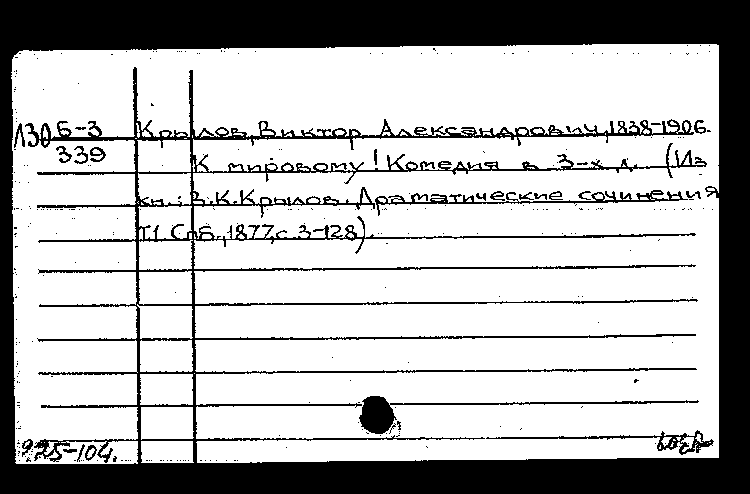 Л30 Б-3 Крылов, Виктор Александрович, 1838-1906.
339 К мировому! Комедия в 3-х д. (Из
кн.: В.К.Крылов. Драматические сочинения
Т.1 Спб., 1877, с. 3-128).
225-104.